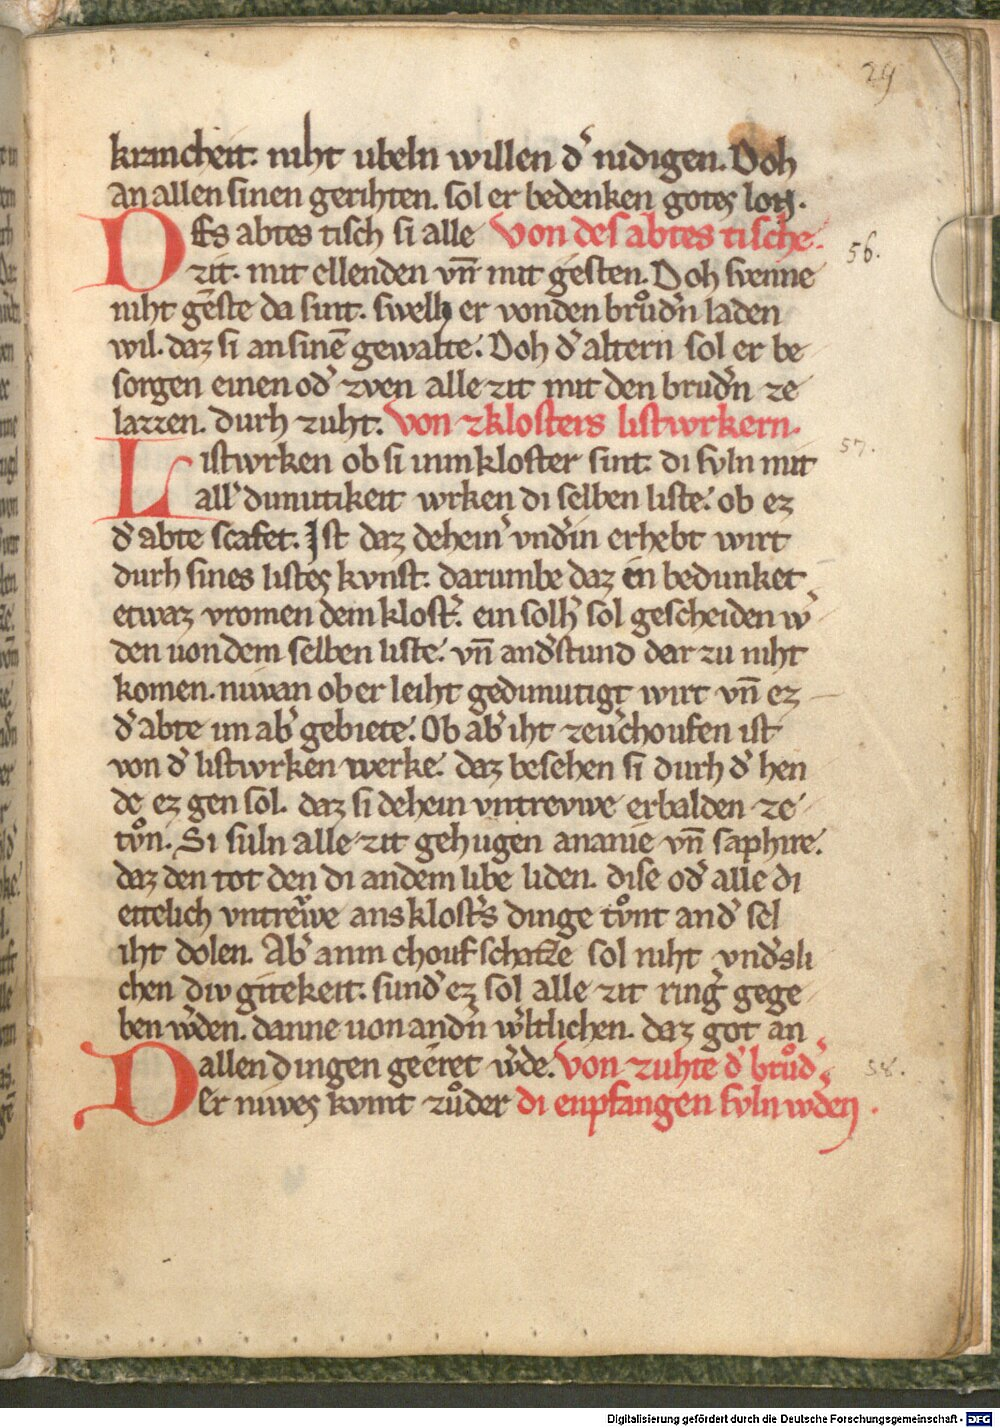 29
krancheit. niht ubeln willen dˀ nidigen. Doh
an allen sinen gerihten. sol er bedenken gotes lon.
DEs abtes tisch si alle von des abtes tische.
zit. mit ellenden vn̄ mit gesten. Doh swenne
56.
niht geste da sint. swelh er vonden brůdˀn laden
wil. daz si an sinē gewalte. Doh dˀ altern sol er be
sorgen einen odˀ zven alle zit mit den brudˀn ze
lazzen. durh zuht. von zklosters listwrkern.
57.
Listwrken ob si inmkloster sint. di svln mit
allˀ dimutikeit wrken di selben liste. ob ez
dˀ abte scafet. Ist daz deheinˀ vndˀin erhebt wirt
durh sines listes kvnst. darumbe daz en bedunket
etwaz vromen dem klostˀ. ein solhˀ sol gescheiden wˀ
den uon dem selben liste. vn̄ andˀstund dar zu niht
komen. niwan ob er leiht gedimutigt wirt vn̄ ez
dˀ abte im abˀ gebiete. Ob abˀ iht zeuˀchoufen ist
von dˀ listwrken werke. daz besehen si durh dˀ hen
de ez gen sol. daz si dehein vntrevwe erbalden ze
tv̊n. Si suln alle zit gehugen ananie vn̄ saphire.
daz den tot den di andem libe liden. dise odˀ alle di
ettelich vntrewe ans klostˀs dinge tv̊nt andˀ sel
iht dolen. Abˀ anm chouf schatze sol niht vndˀsli
chen div gitekeit. sundˀ ez sol alle zit ringˀ gege
ben wˀden. danne uon andˀn wˀltlichen. daz got an
allen dingen geeret wˀde. von zuhte dˀ brůdˀ
58.
Der niwes kvmt zůder di enpfangen svln wˀden.
Digitalisierung gefördert durch die Deutsche Forschungsgemeinschaft - DFG